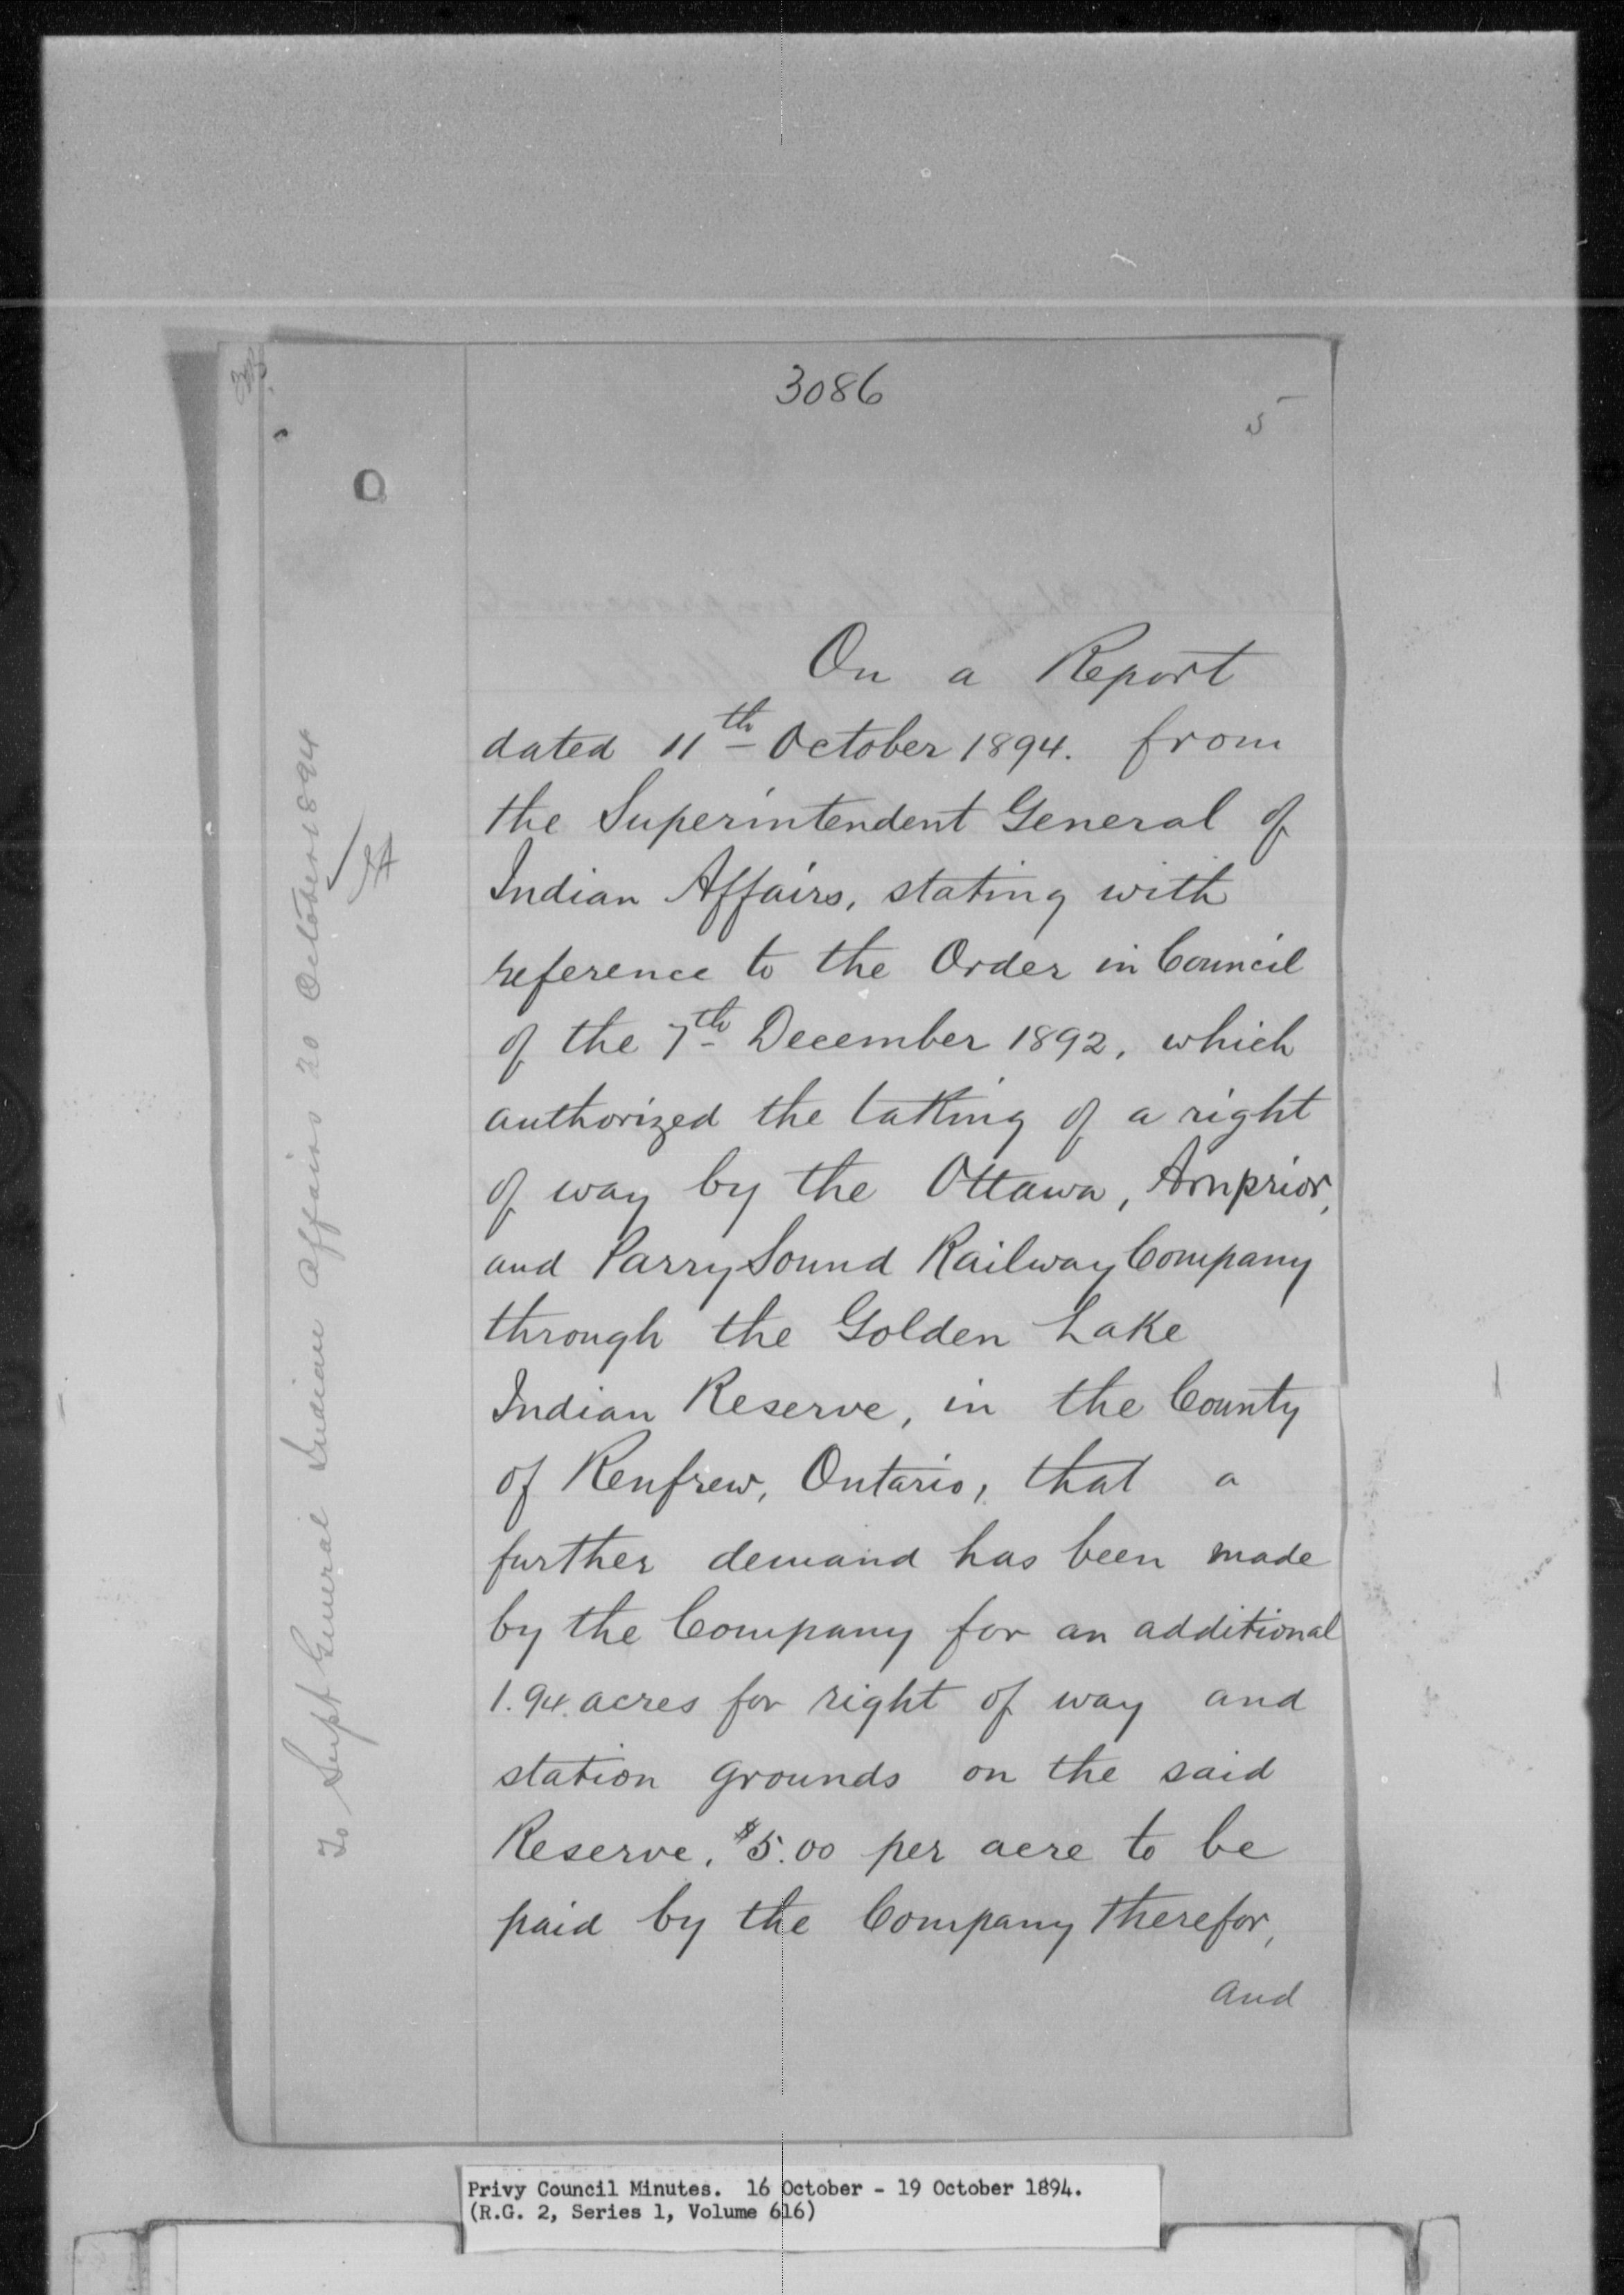 3086
5
O
On a Report
dated 11th October 1894. from
the Superintendent General of
Indian Affairs, stating with
reference to the Order in Council
of the 7th December 1892, which
authorized the taking of a right
of way by the Ottawa, Arnprior,
and Parry Sound Railway Company
through the Golden Lake
Indian Reserve, in the County
of Renfrew, Ontario, that a
further demand has been made
by the Company for an additional
1.94 acres for right of way and
station grounds on the said
Reserve, $5.00 per acre to be
paid by the Company therefor,
and
To Supt General Indian Affairs 20 October 1894
Privy Council Minutes. 16 October - 19 October 1894.
(R.G. 2, Series 1, Volume 616)